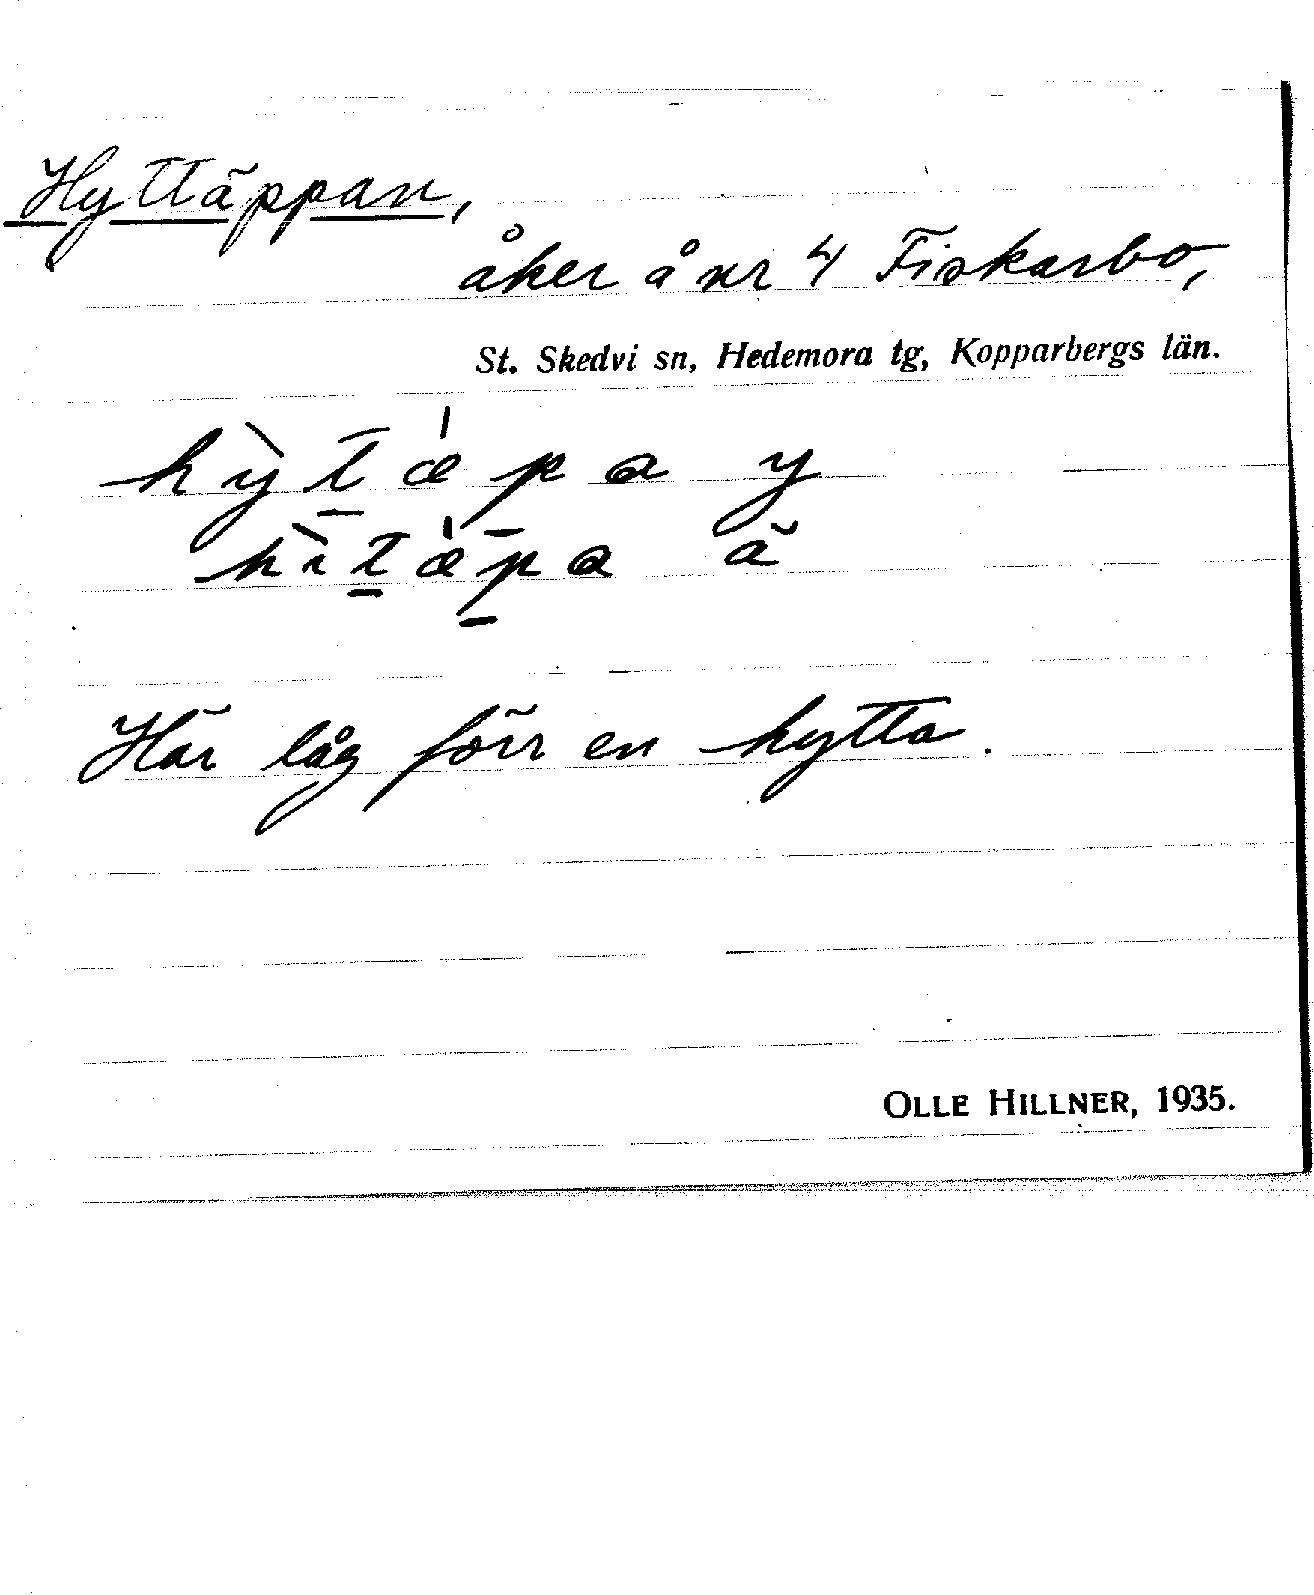 Hyttäppan,
åker å nr 4 Fiskarbo,
St. Skedvi sn, Hedemora tg, Kopparbergs län.
hỳt̠æ̍p̠a y
hìt̠æ̍p̠a ä
Här låg förr en hytta.
OLLE HILLNER, 1935.